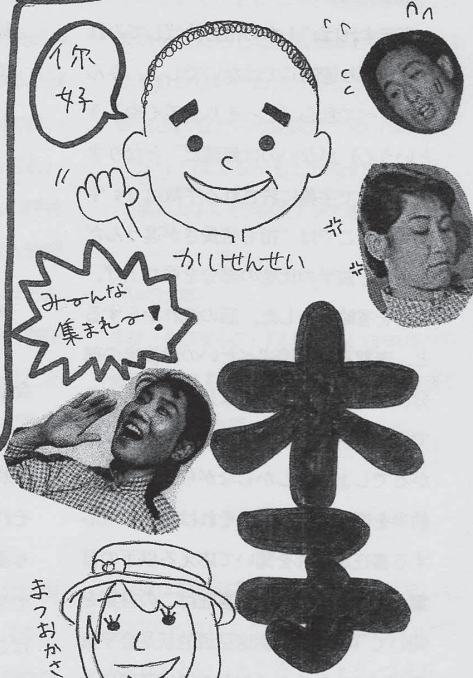 你
好
かいせんせい
み〜んな
集まれ〜!
まつおかさ